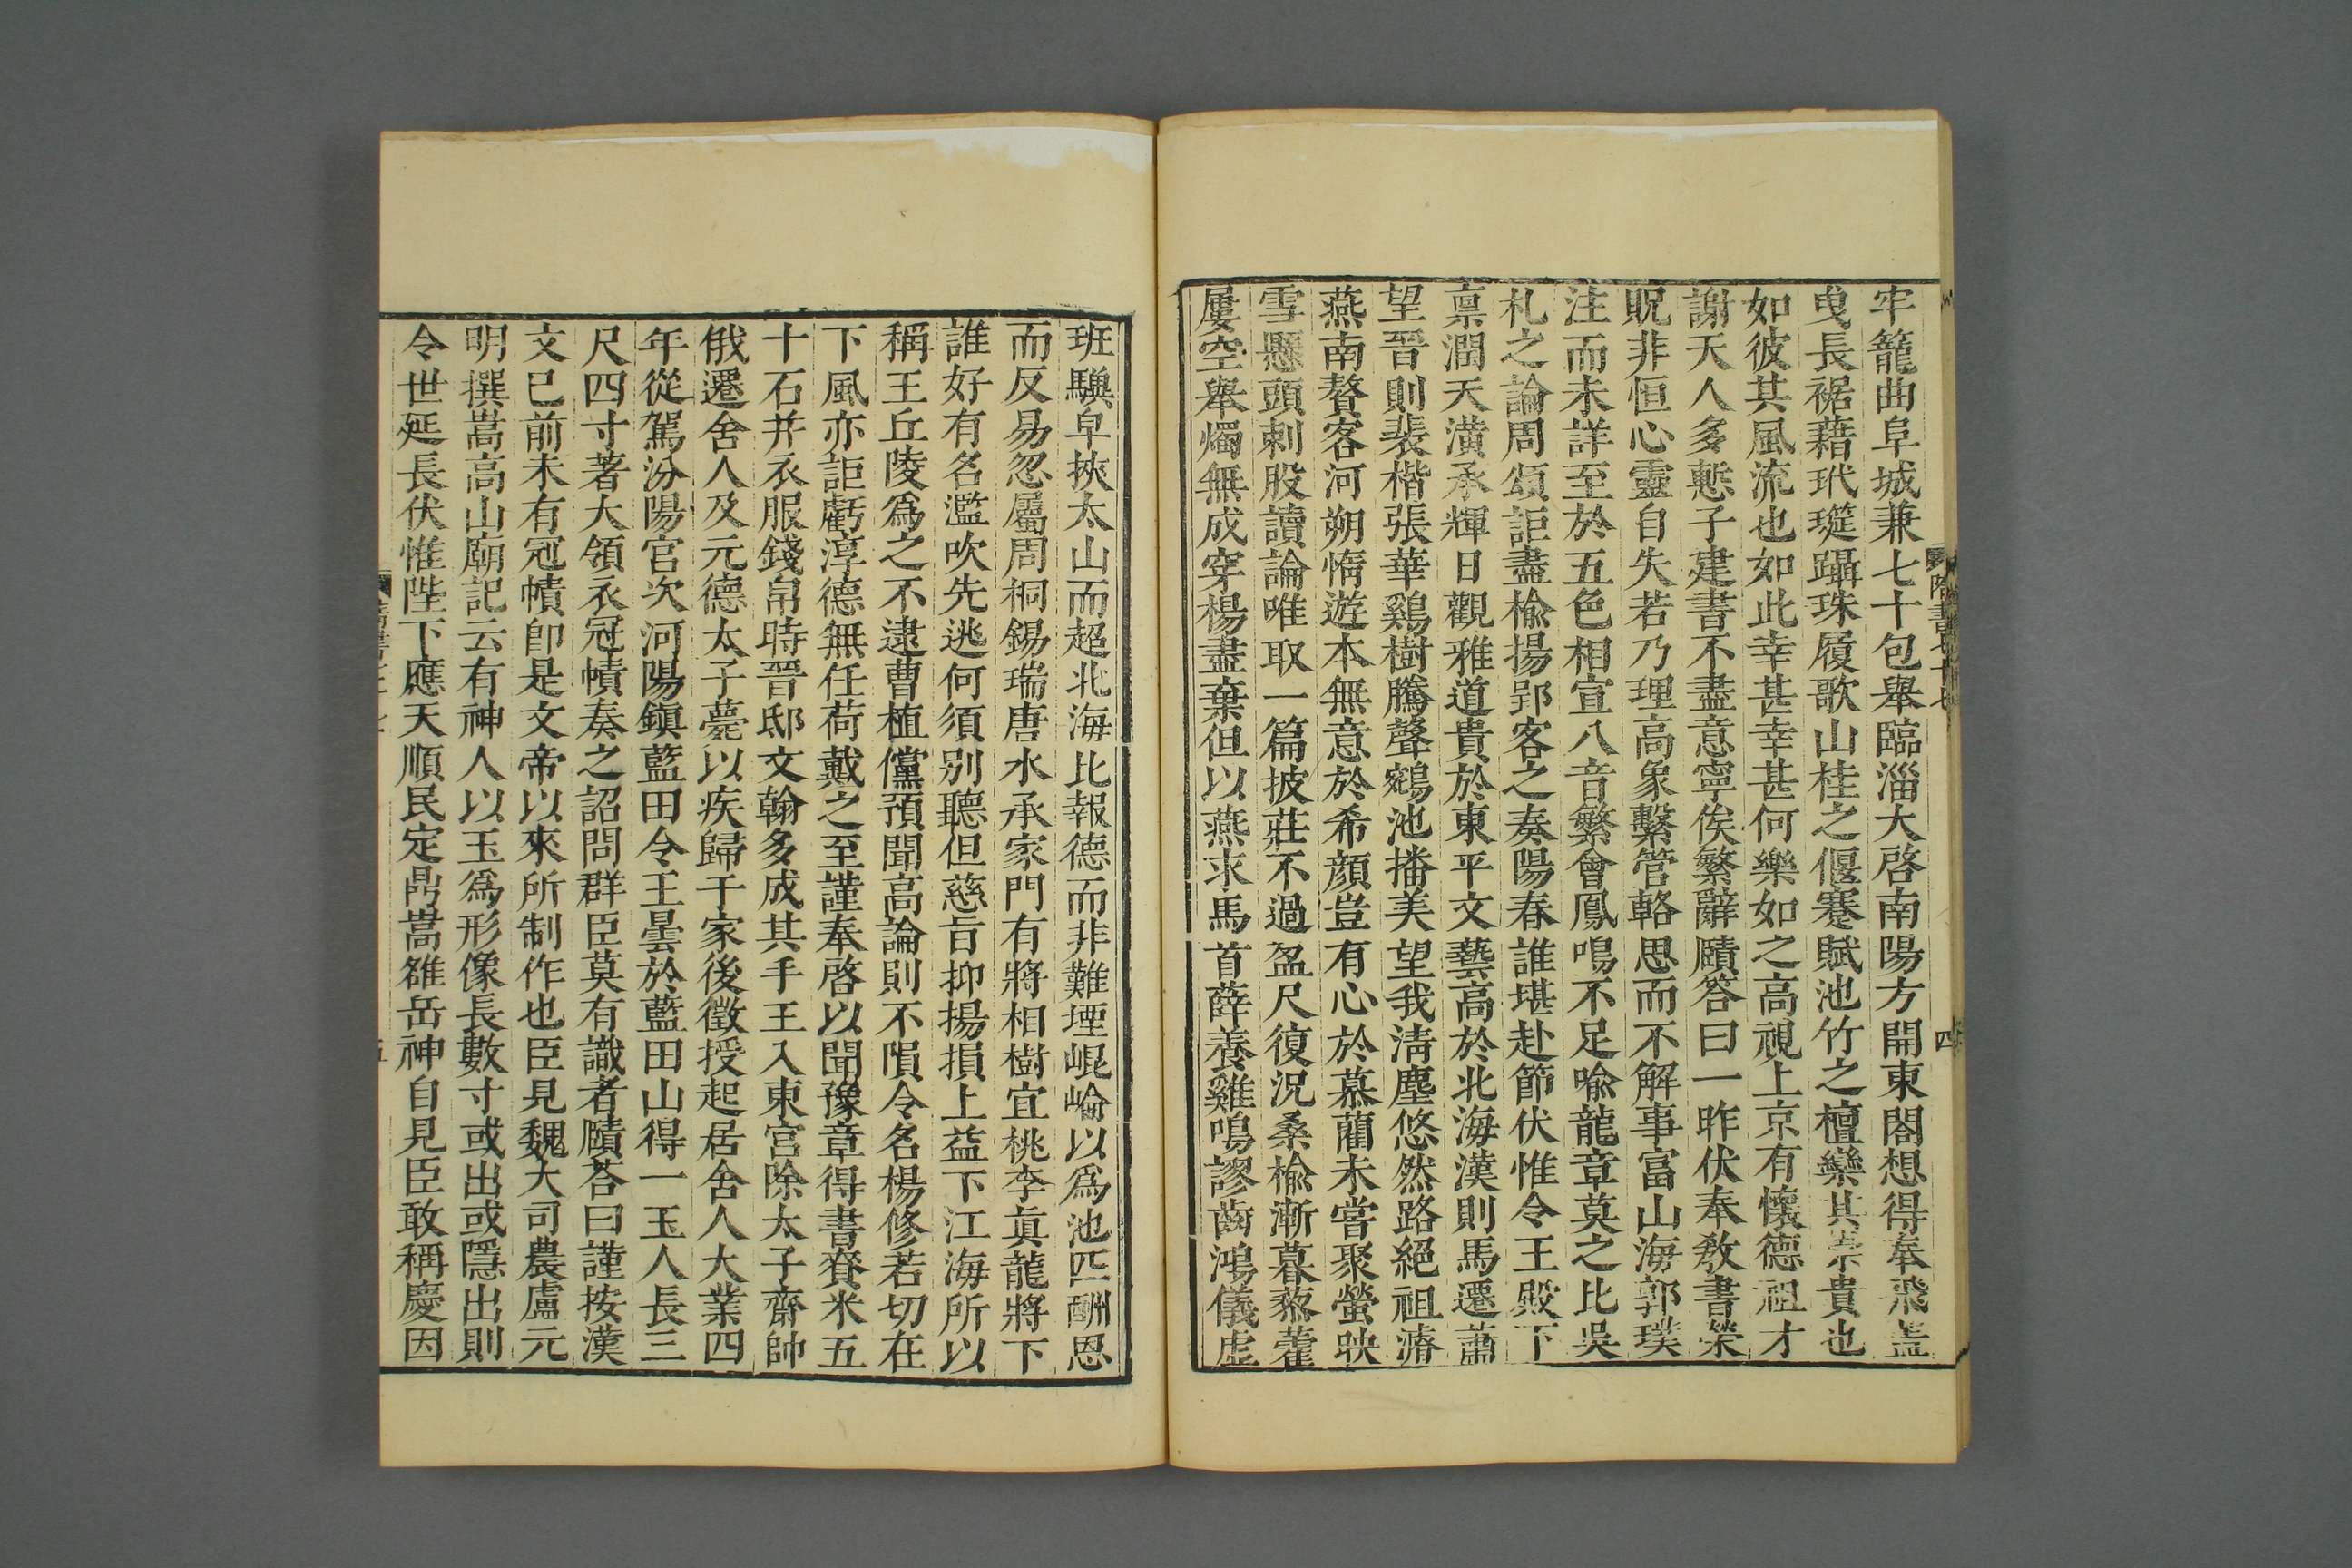 牢籠曲阜城兼七十包舉臨淄大啓南陽方開東閤想得奉飛蓋
曳長裾藉玳筵躡珠履歌山桂之偃蹇賦池竹之檀欒其崇貴也
如彼其風流也如此幸甚幸甚何樂如之高視上京有懷德祖才
謝天人多慙子建書不盡意寧俟繁辭賾答曰一昨伏奉敎書榮
貺非恒心靈自失若乃理高象繫管輅思而不解事富山海郭璞
注而未詳至於五色相宣八音繁會鳳鳴不足喻龍章莫之比吳
札之論周頌詎盡楡揚郢客之奏陽春誰堪赴節伏惟令王殿下
禀潤天潢承輝日觀雅道貴於東平文藝高於北海漢則馬遷蕭
望晉則裴楷張華鷄樹騰聲鵷池播美望我淸塵悠然路絕祖濬
燕南贅客河朔惰遊本無意於希顔豈有心於慕藺未嘗聚螢映
雪懸頭刺股讀論唯取一篇披莊不過盈尺復況桑楡漸暮藜藿
屢空舉燭無成穿楊盡棄但以燕求馬首薛養雞鳴謬齒鴻儀虛
班驥皁挾太山而超北海比報德而非難堙崐崘以爲池匹酬恩
而反易忽屬周桐錫瑞唐水承家門有將相樹宜桃李眞龍將下
誰好有名濫吹先逃何須別聽但慈旨抑揚損上益下江海所以
稱王丘陵爲之不逮曹植儻預聞高論則不隕令名楊修若切在
下風亦詎虧淳德無任荷戴之至謹奉啓以聞豫章得書賚米五
十石并衣服錢帛時晉邸文翰多成其手王入東宮除太子齋帥
俄遷舍人及元德太子薨以疾歸于家後徵授起居舍人大業四
年從駕汾陽宮次河陽鎭藍田令王曇於藍田山得一玉人長三
尺四寸著大領衣冠幘奏之詔問群臣莫有識者賾荅曰謹按漢
文已前未有冠幘卽是文帝以來所制作也臣見魏大司農盧元
明撰嵩高山廟記云有神人以玉爲形像長數寸或出或隱出則
令世延長伏惟陛下應天順民定鼎嵩雒岳神自見臣敢稱慶因
隋書七十七
四
五